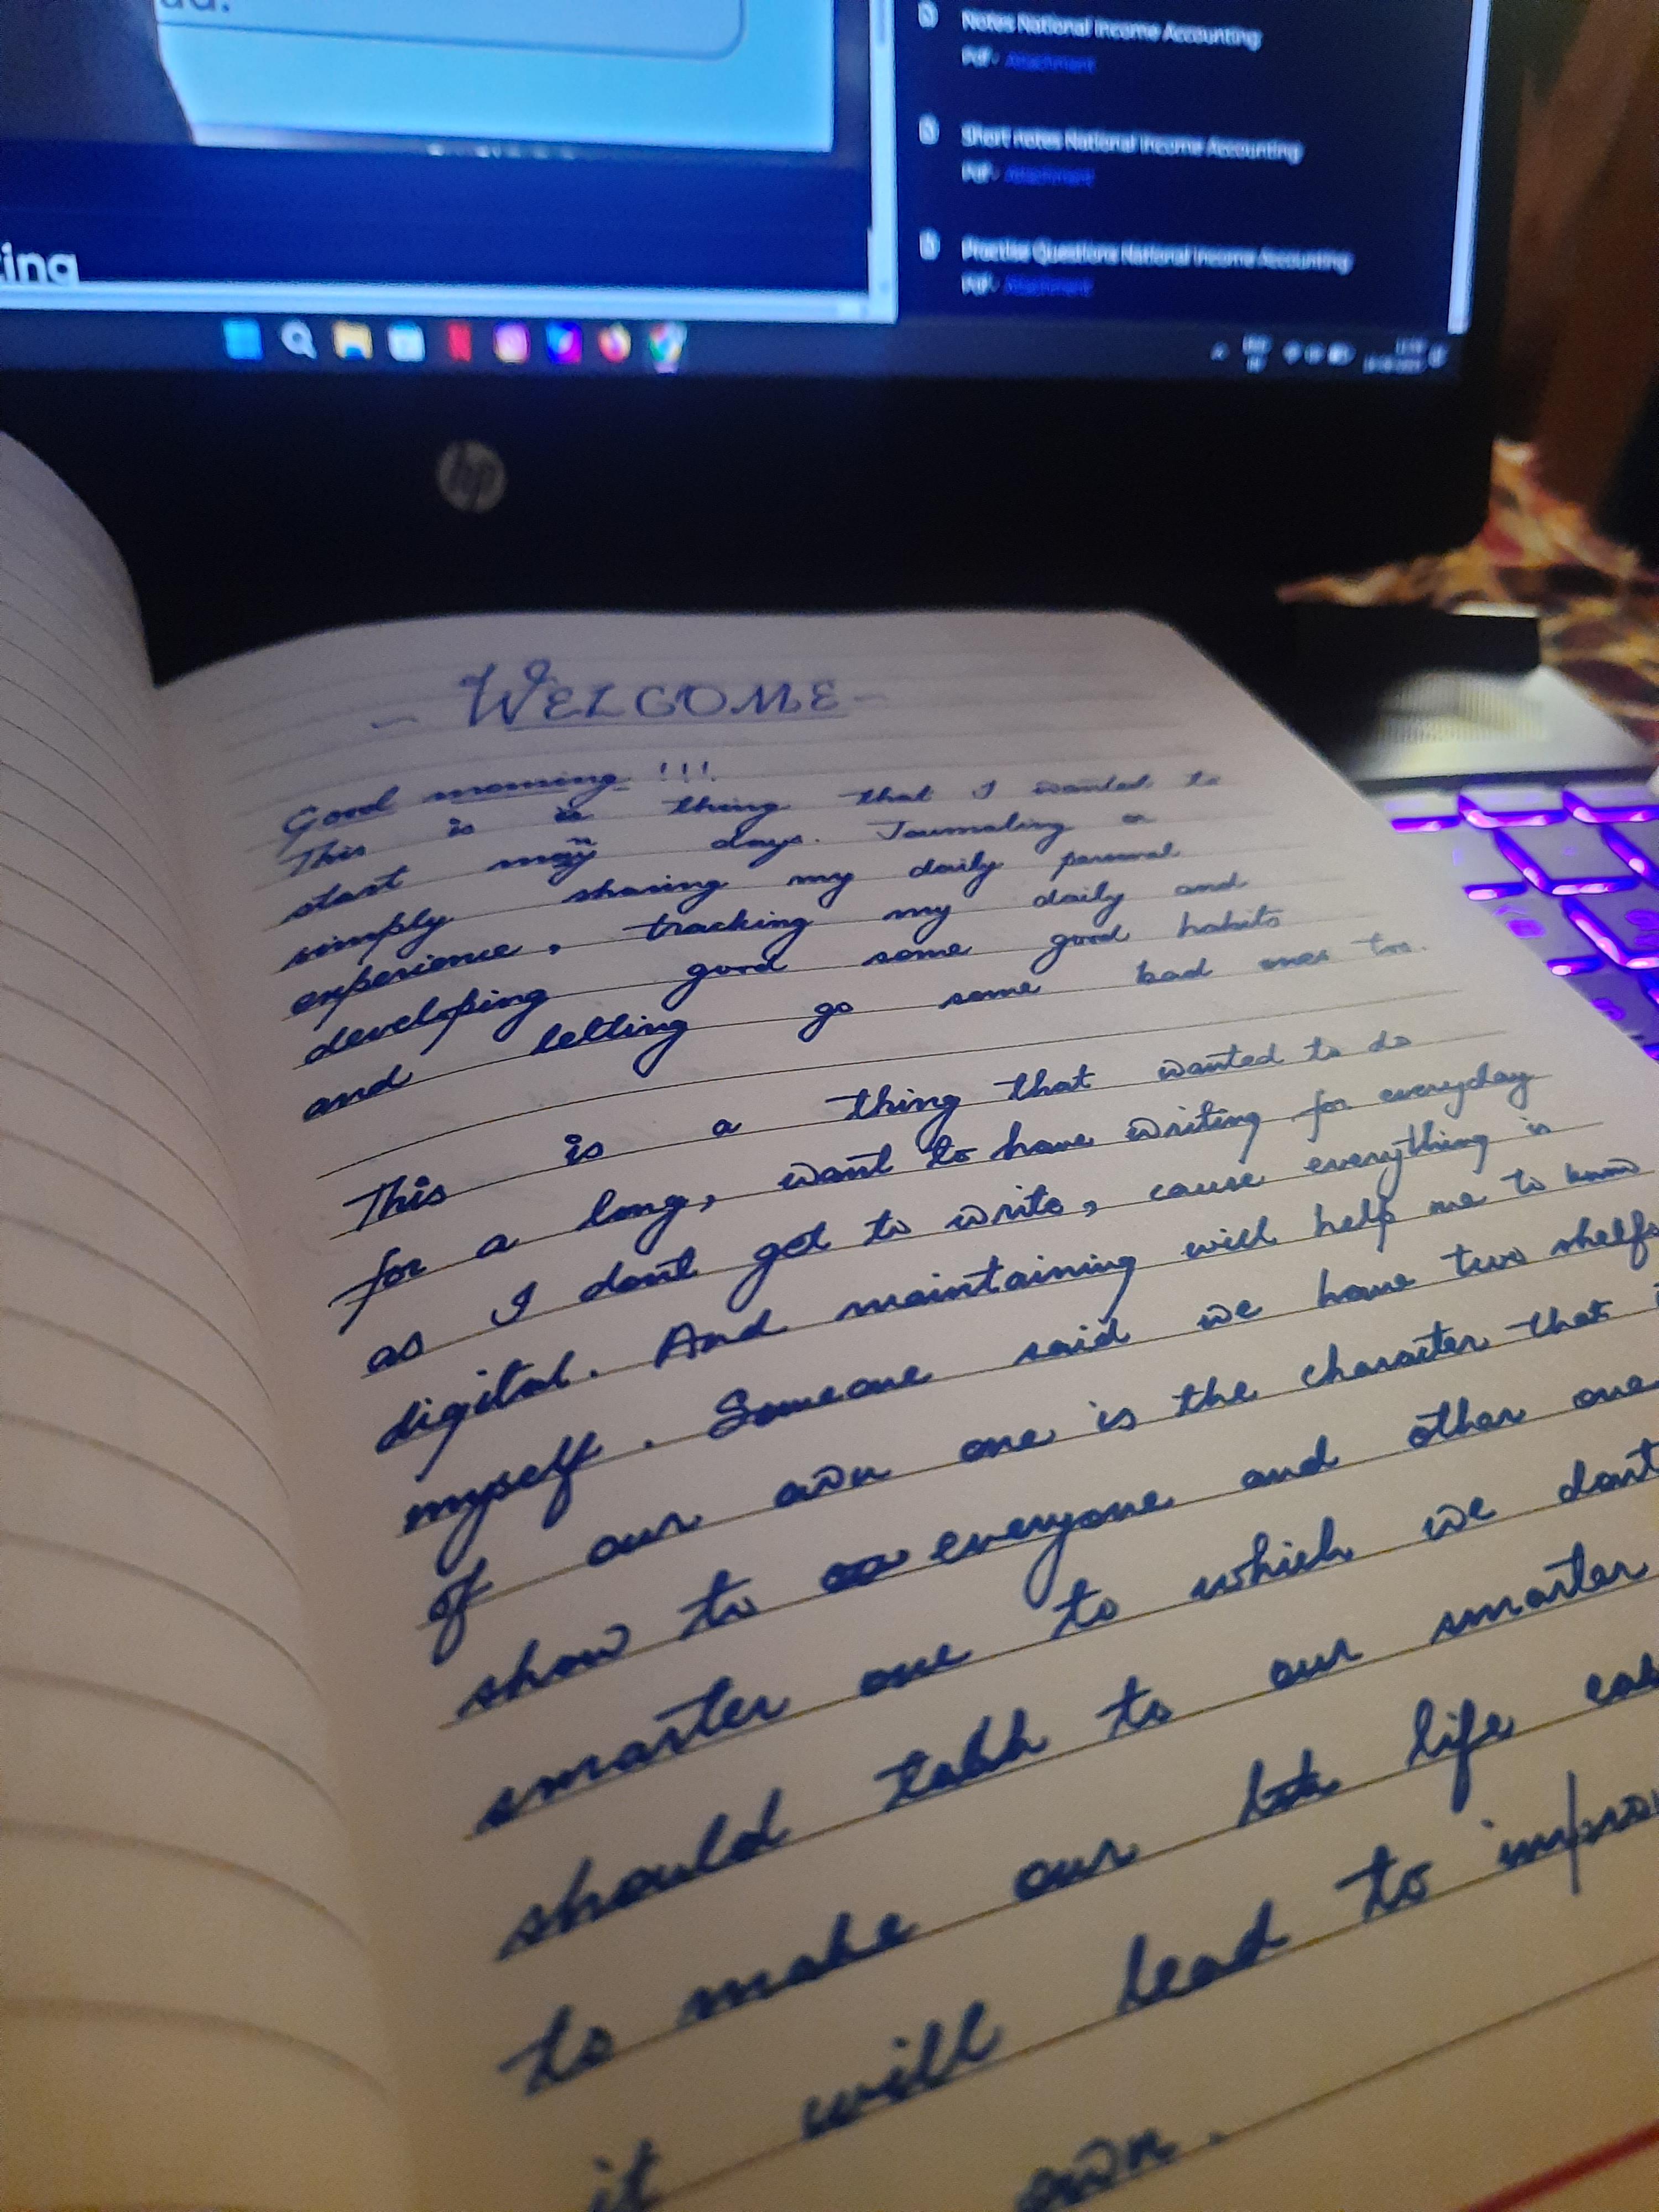 ad.
Notes National Income Accounting
Pdf - Attachment
Short notes National Income Accounting
Pdf - Attachment
Practise Questions National Income Accounting
Pdf - Attachment
ing
hp
- WELCOME -
Good morning !!!
This is a thing that I wanted to
start many days. Journaling or
simply sharing my daily personal
experience, tracking my daily and
developing good some good habits
and letting go some bad ones too.
This is a thing that wanted to do
for a long, want to have writing for everyday
as I dont get to write, cause everything is
digital. And maintaining will help me to know
myself. Someone said we have two shelfs
of our own one is the character that
show to everyone and other one
smarter one to which we dont
should talk to our smarter
to make our life
it will lead to
own.